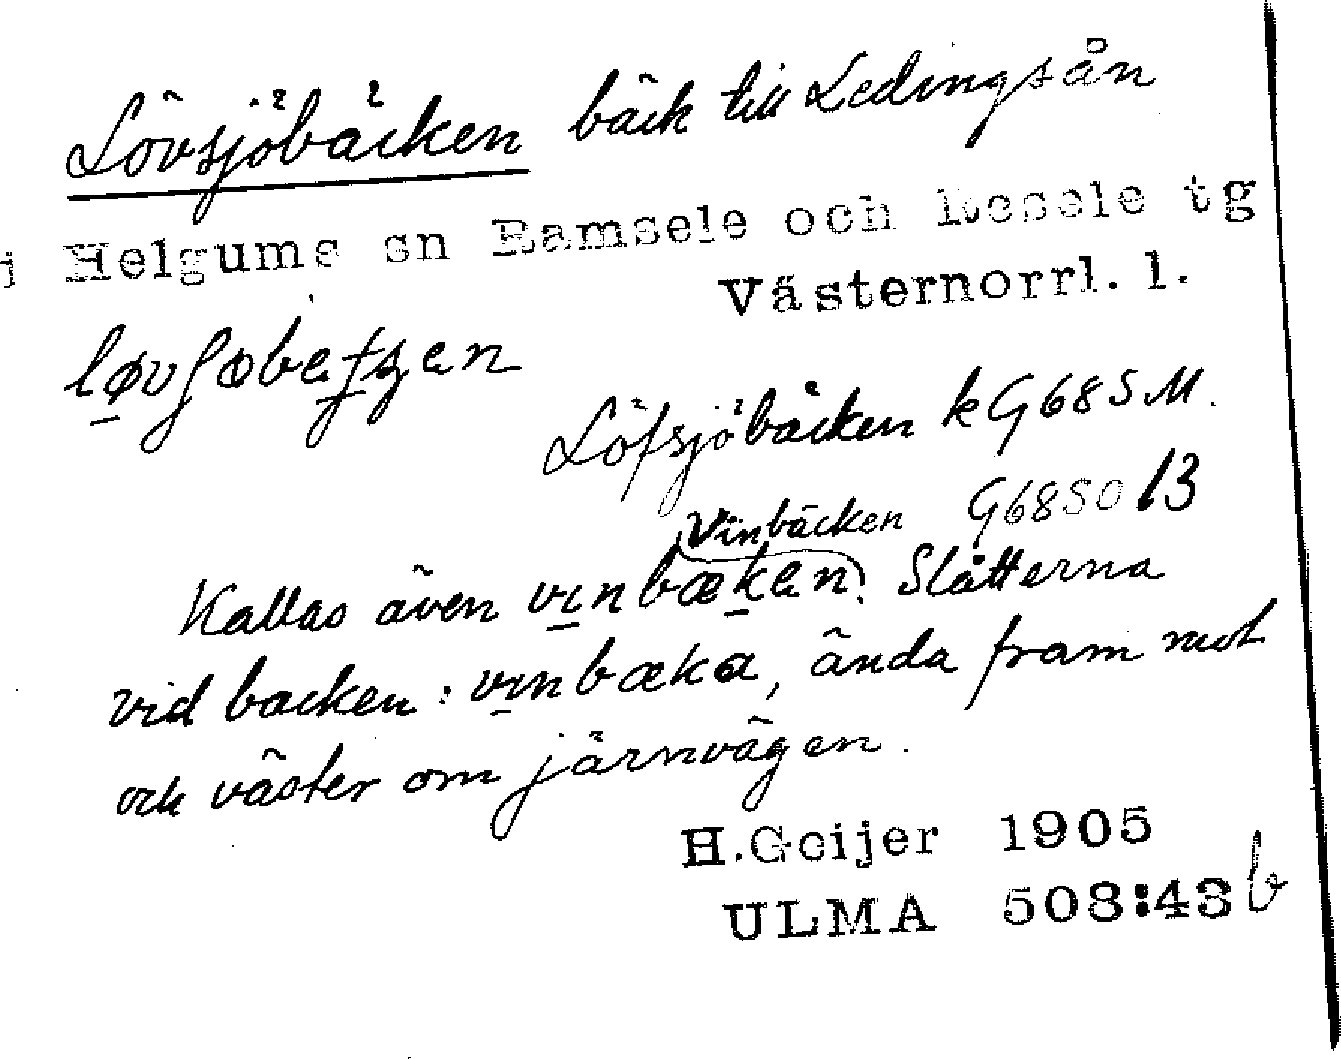 Lövsjöbäcken bäck till Ledingsån
i Helgums sn Ramsele och Resele tg
Västernorrl. l.
Löfsjöbäcken kG68SM.
Vinbäcken G68SO 13
Kallas även vınbækan. Slåtterna
vid backen: vınbæka, ända fram mot
och väster om järnvägen.
H.Geijer 1905
ULMA 508:43 b